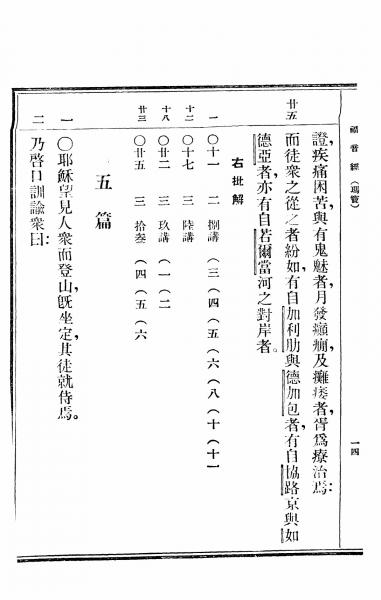 福音經（瑪竇）
一四
證，疾痛困苦，與有鬼魅者，月發癲癇，及癱瘓者，胥爲療治焉：
廿五
而徒衆之從之者紛如，有自加利肋與德加包者，有自協路京與如
德亞者，亦有自若爾當河之對岸者。
右批解
一 〇十一 二 捌講 （三（四（五（六（八（十（十一
十二 〇十七 三 陸講
十八 〇廿二 三 玖講 （一（二
廿三 〇廿五 三 拾叁 （四（五（六
五篇
一 〇耶穌望見人衆而登山，旣坐定，其徒就侍焉。
二 乃啓口訓諭衆曰：